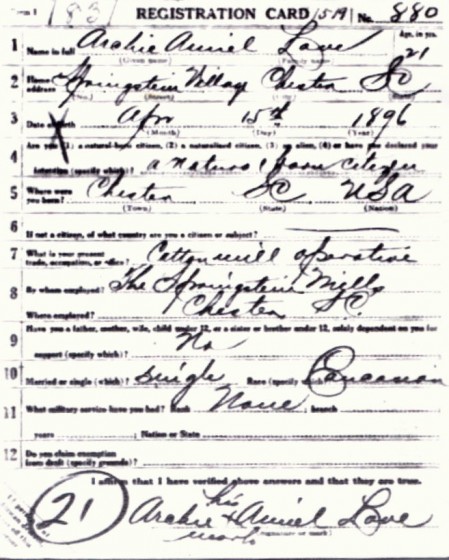 183 REGISTRATION CARD 1519 No. 880
1 Name in full Archie Auriel Love Age, in yrs. 21
(Given name) (Family name)
2 Home address Springstein Village Chester SC
(No.) (Street) (City)
3 Date of birth Apr 15th 1896
(Month) (Day) (Year)
Are you (1) a natural-born citizen, (2) a naturalized citizen, (3) an alien, (4) or have you declared your
4 intention (specify which)? a natural born citizen
5 Where were you born? Chester SC USA
(Town) (State) (Nation)
6 If not a citizen, of what country are you a citizen or subject?
7 What is your present trade, occupation, or office? Cotton mill operative
8 By whom employed? The Springstein Mills
Where employed? Chester SC.
9 Have you a father, mother, wife, child under 12, or a sister or brother under 12, solely dependent on you for
support (specify which)? No
10 Married or single (which)? single Race (specify which)? Caucasian
11 What military service have you had? Rank None ; branch
years ; Nation or State
12 Do you claim exemption from draft (specify grounds)?
I affirm that I have verified above answers and that they are true.
21 Archie his + mark Auriel Love